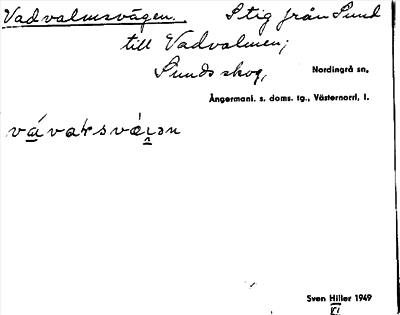 Vadvalmsvägen. Stig från Sund
till Vadvalmen;
Sunds skog,
Nordingrå sn,
Ångermanl. s. doms. tg., Västernorrl, l.
Sven Hiller 1949
VI